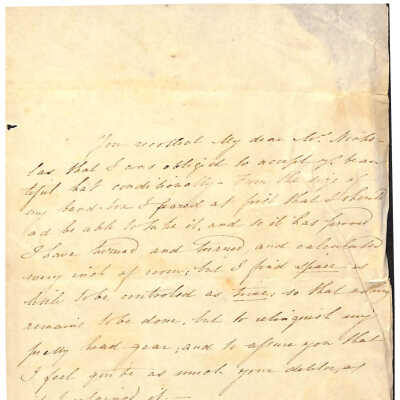 You recollect my dear Mrs. Nicho-
las, that I was obliged to accept yr beau-
tiful hat conditionally - From the size of
my band-box I feared at first that I should
not be able to take it, and so it has proved
I have turned and turned, and calculated
every inch of room; but I find space is as
little to be controled as time; so that nothing
remains to be done, but to relinquish my
pretty head gear; and to assure you that
I feel quite as much your debtor, as
if I retained it -